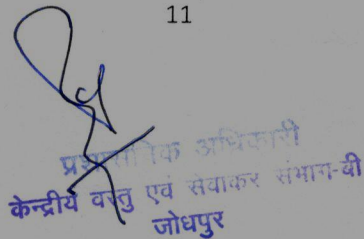 11
प्रशासनिक अधिकारी
केन्द्रीय वस्तु एवं सेवाकर संभाग-बी
जोधपुर